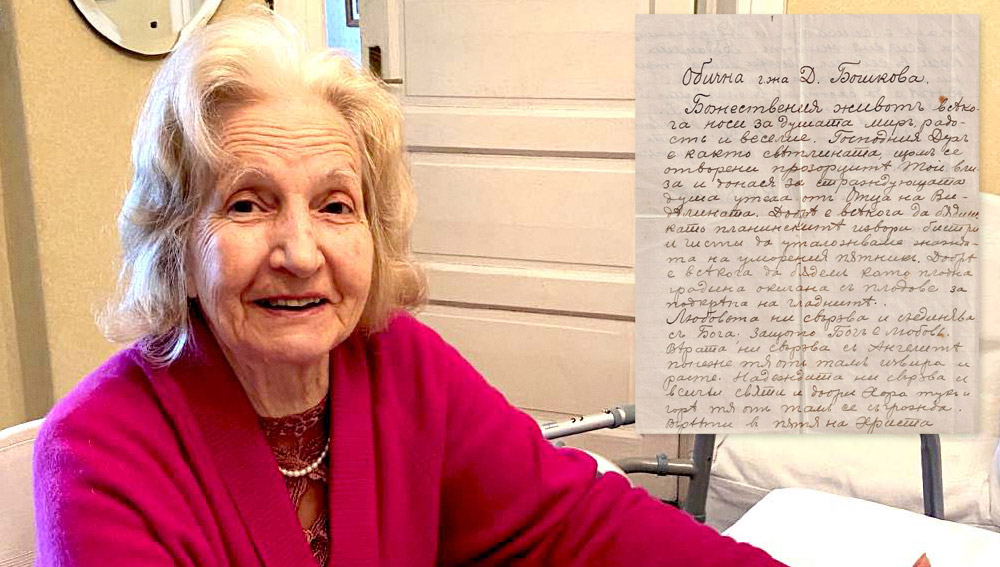 Обична г-жа Д. Бошкова.
Божествения животъ всѣко-
га носи за душата миръ, радо-
сть и веселие. Господния Духъ
е както свѣтлината, щомъ се
отворени прозорцитѣ Той вли
за и донася за страждующата
душа утеха отъ Отца на Ви-
дѣлината. Добрѣ е всѣкога да бѫдем
като планинскитѣ извори бистри
и чисти да уталожваме жаждa-
та на уморения пѫтникъ. Добрѣ
е всѣкога да бѫдемъ като плодна
градина окичана съ плодове за
подкрѣпа на гладнитѣ.
Любовьта ни свързва и съединява
съ Бога. Защото Богъ е любовь.
Вѣрата ни свързва съ Ангелитѣ
понеже тя отъ тамъ извира и
расте. Надеждата ни свързва и
всички святи и добри хора тукъ и
горѣ тя отъ тамъ се съгражда.
Врѣти в пѫтя на Христа